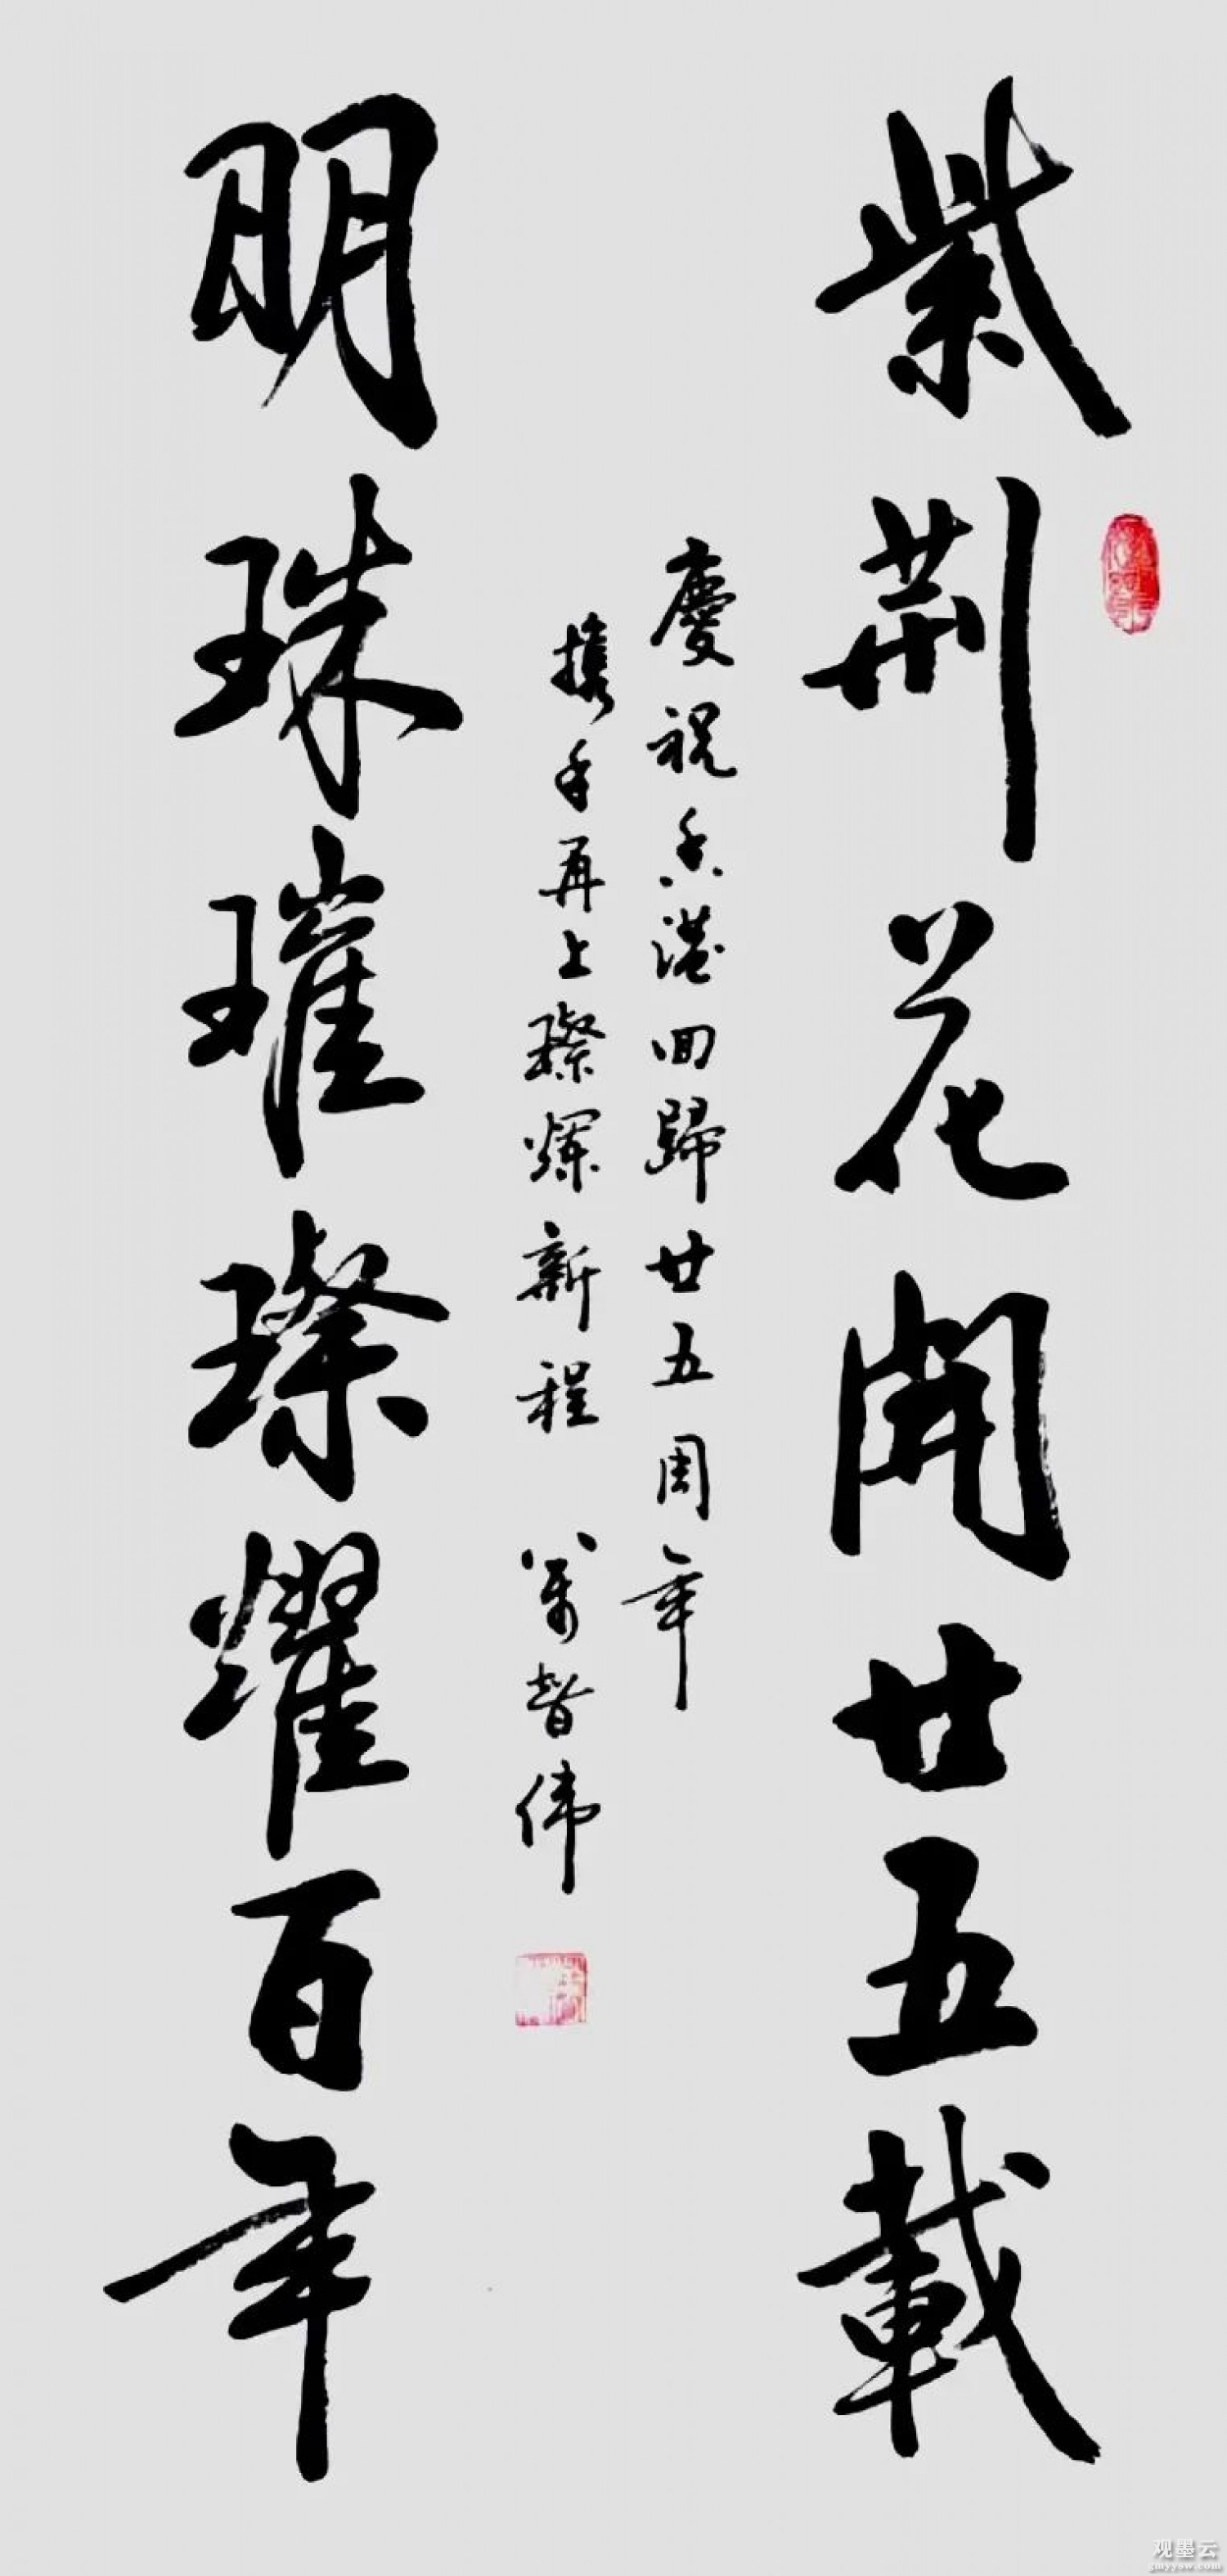 紫荆花開廿五載
慶祝香港回歸廿五周年
携手再上璨爛新程 萬智伟
明珠璀璨耀百年
观墨云
gmyyaw.com